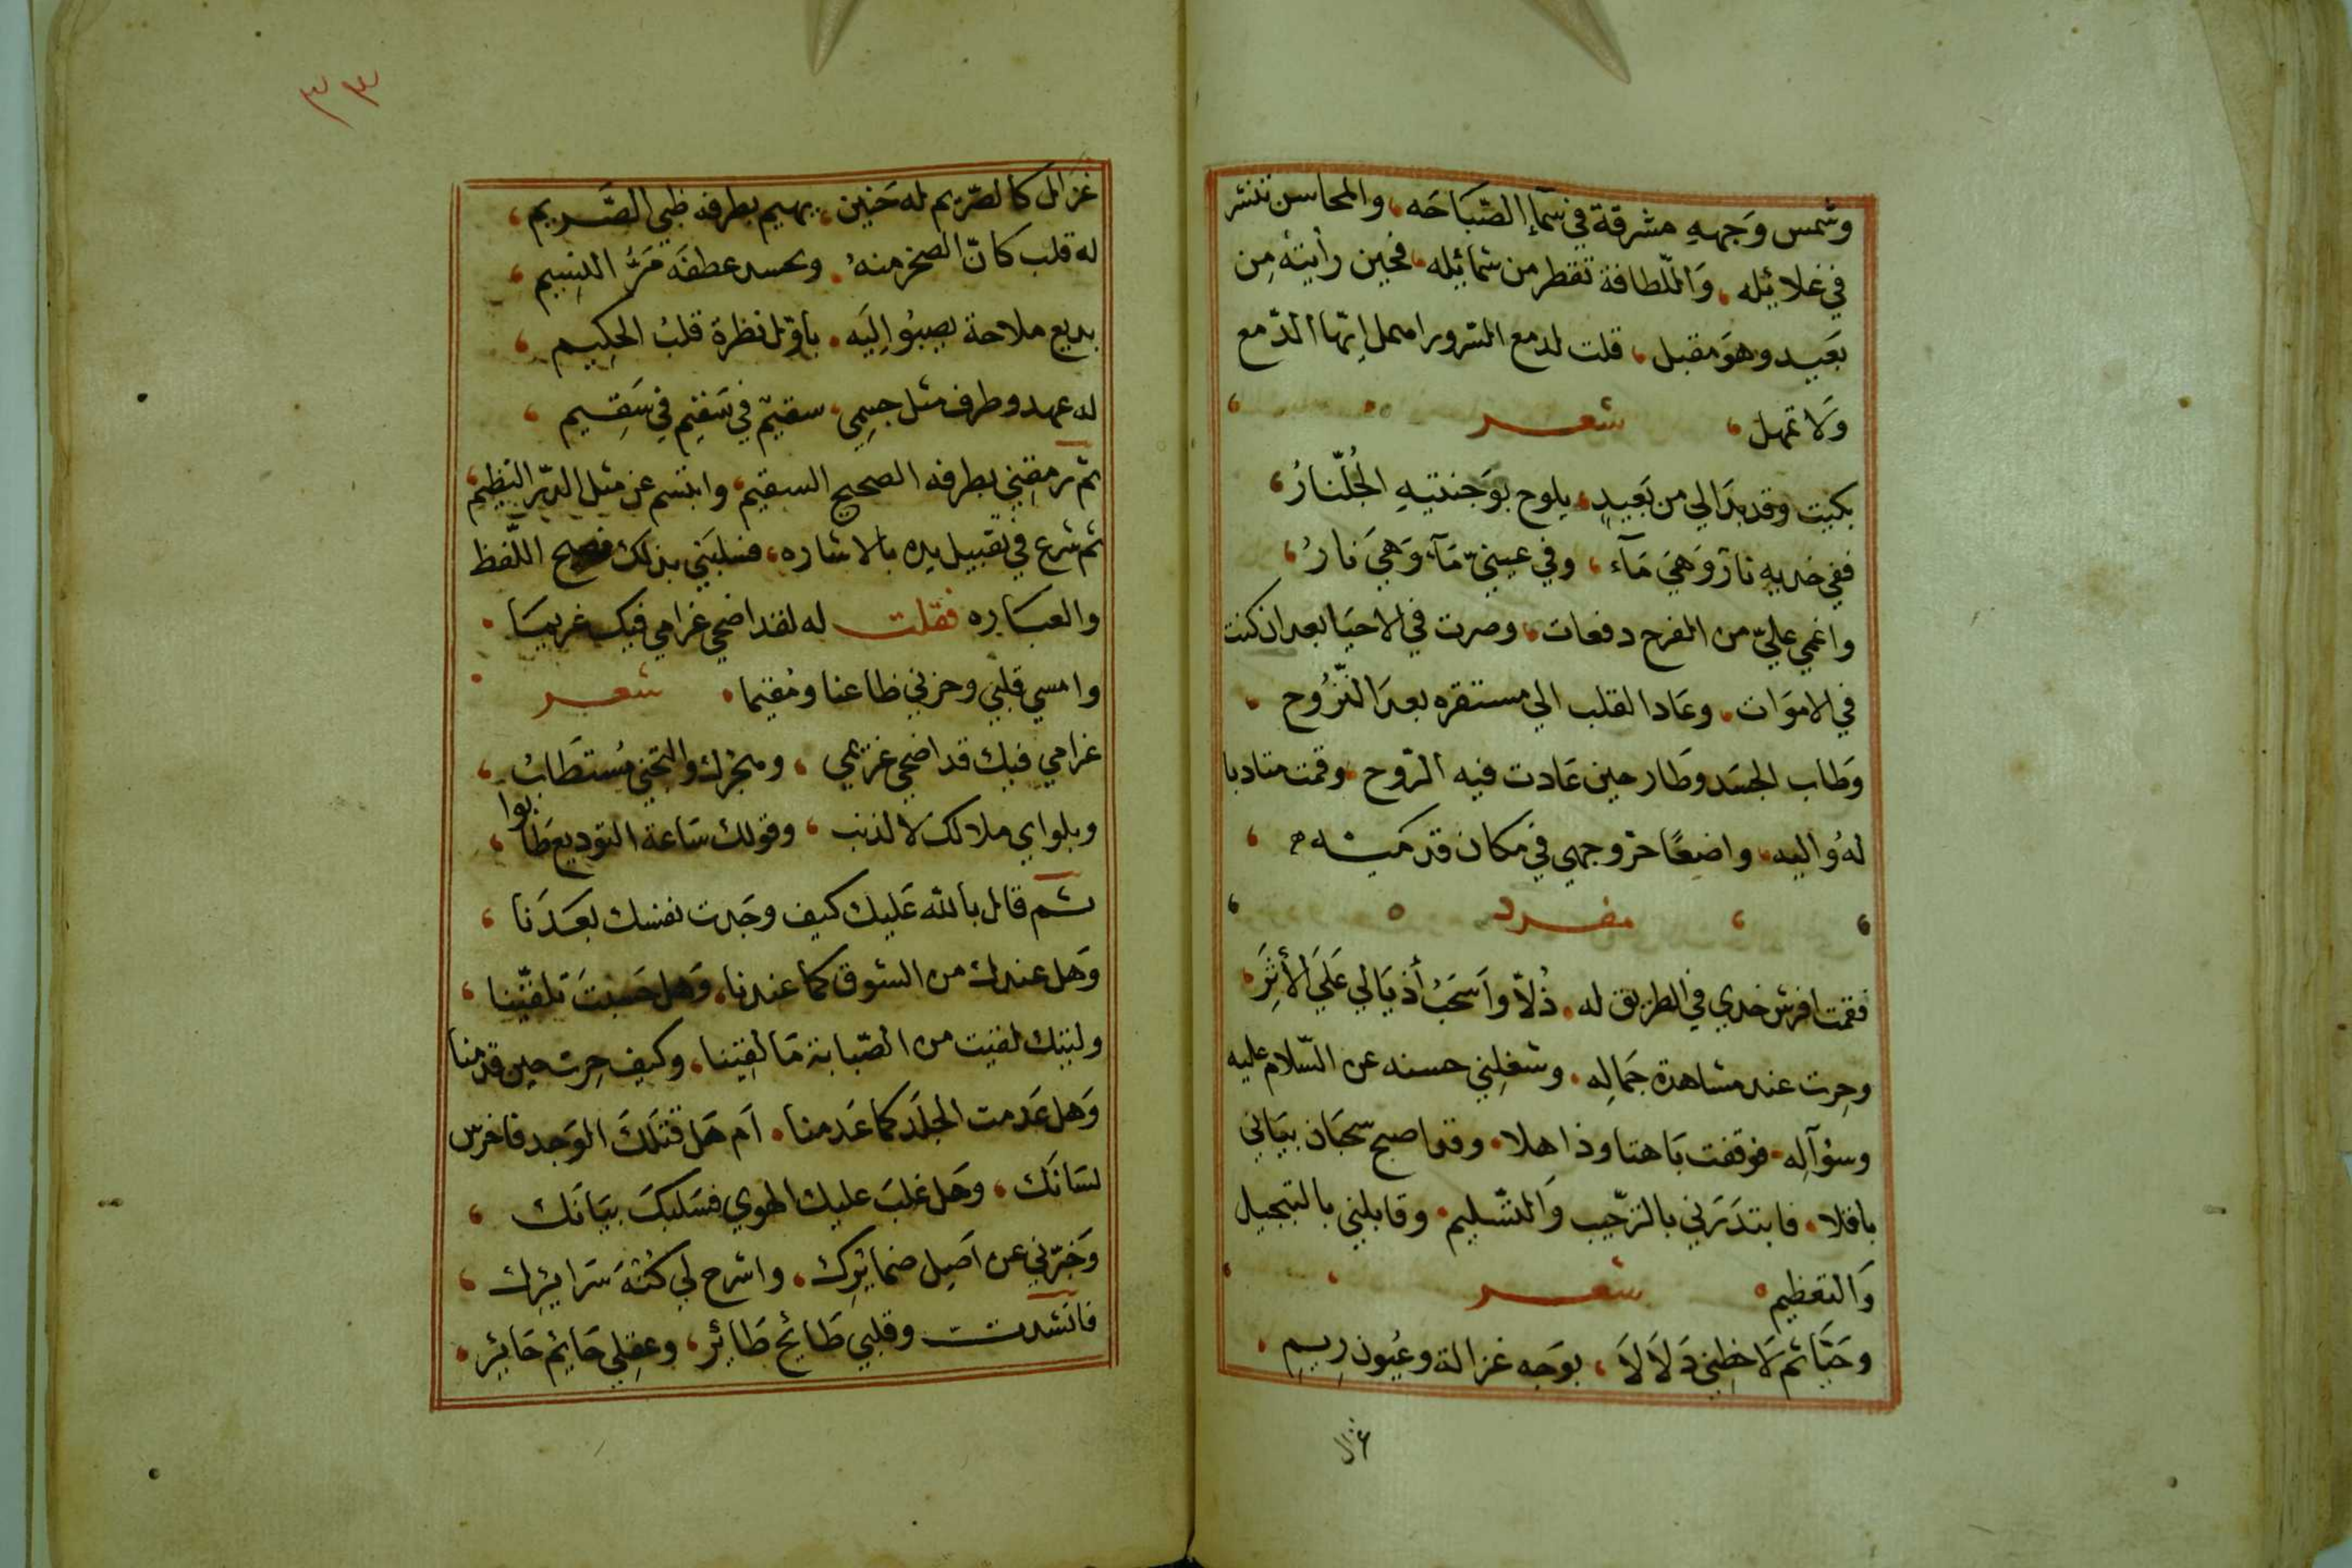 وشمس وَجههِ مشرقة في سمآءِ الصّبَاحَه، والمحاسن تنثر
في غلائيله، وَاللّطافة تقطر من شمائيله، فحين رأيتهُ مِن
بَعَيد وهوَ مقبل، قلت لدمع السّرور امهل اِيّها الدّمع
وَلا تمهل، شعر
بكيت وقد بدَا لي من بَعَيدٍ، يلوح بوَجنتيهِ الجُلّنارُ،
ففي خديهِ نارٌ وَهيَ مَآء، وفي عينيّ مَآءٌ وَهيَ نارُ،
واغمي عليّ من الفرح دفعات، وصرت في الاحيَا بعد ان كنت
في الاموَات، وعَاد القلب الي مستقره بعدَ النّزُوح
وَطاب الجسَد وطَار حين عَادت فيه الرّوح وقمت متادبا
لهُ واليه، واضعًا حرّ وجهي في مكان قدميه
مفرد
فقمت افرش خدي في الطريق له، ذُلاّ وَاَسحَبُ أذيَالي عَلَي الأثِرَ
وحِرت عند مشاهدة جَمالِه، وشغلِني حسنه عن السّلام عليه
وسؤآلِه، فوَقفت بَاهتا وذاهلا، وقد اصبح سحبَان بيَاني
باقلا، فابتدَرَني بالترّحيب وَالتّسليم، وقابلني بالتبجيل
وَالتعظيم شعر
وحَيَّا ثم لاَحَظِني دَلاَلاَ، بوَجه غزالة وعيُون رِيمِ
غزال
٣٣
غزَال كالصّرِيم له حَنين، يهيم بطرفه ظبي الصَّريم،
له قلب كانّ الصخر منهُ، وبحسد عطفَه مَرُّ النسِيم،
بديع ملاحة يصبُوا اِليَه، باوّل نظرة قلبُ الحكِيم،
له عهد وطرف مثل جسِمي، سقيمٌ في سَقيم في سَقيم،
ثم رمقنِي بطرفه الصحيح السقيم، وابتسم عن مثل الدّر النظيم،
ثم شرع في تقبيل يده بالاشاره، فسلبَني بذلك فصيح اللّفظ
والعبَاره فقلت له لقد اضحي غرامي فيك غريبَا
وامسي قلبي وحزني ظاعنا ومُقيما شعر
غرامي فيك قد اضحي غريمي، وهجرك والتجني مُستطَابُ،
وبلواي ملالك لا لذنب، وقولك سَاعة التوديع طَابوا،
ثم قال بالله عَليك كيف وجَدت نفسك بعَدَنا،
وَهل عندك من الشوق كما عندنا، وَهل حَسبت تلفّتنا،
وليتك لقيت من الصّبابة مَا لقِينا، وكيف حِرت حين قدمنا
وَهل عَدمت الجلَد كما عَدمنا، اَم هَل قتلكَ الوَجد فاخرس
لسَانَك، وهَل غلبَ عليك الهوي فسَلبكَ بيَانَك،
وَخبرّني عن اَصِيل ضمايُرك، واشرح لي كُنْهَ سَرايُرِك،
فانشدت وقلبي طَايحُ طَايُر، وعقِلي حَايُم حَايُرِ،